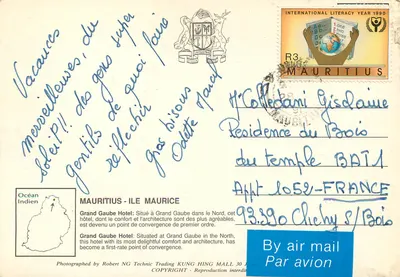 Vacances
merveilleuses, du
soleil!!! des gens super
gentils de quoi faire
réfléchir
gros bisous
Odette Marcel
INTERNATIONAL LITERACY YEAR 1990
R3
MAURITIUS
Mr Colledani Gislaine
Residence du Bois
du temple BAT1
Appt 1052-FRANCE
93390 Clichy s/Bois
Océan
Indien
MAURITIUS - ILE MAURICE
Grand Gaube Hotel: Situé à Grand Gaube dans le Nord, cet
hôtel, dont le confort et l'architecture sont des plus agréables,
est devenu un point de convergence de premier ordre.
Grand Gaube Hotel: Situated at Grand Gaube in the North,
this hotel with its most delightful comfort and architecture, has
become a first-rate point of convergence.
By air mail
Par avion
Photographed by Robert NG Technic Trading KUNG HING MALL 30
COPYRIGHT - Reproduction